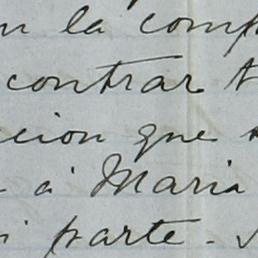 en la comp
contrar t
cion que
á Maria
i parte.